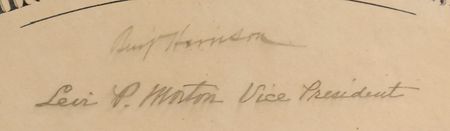 Benj Harrison
Levi P. Morton Vice President